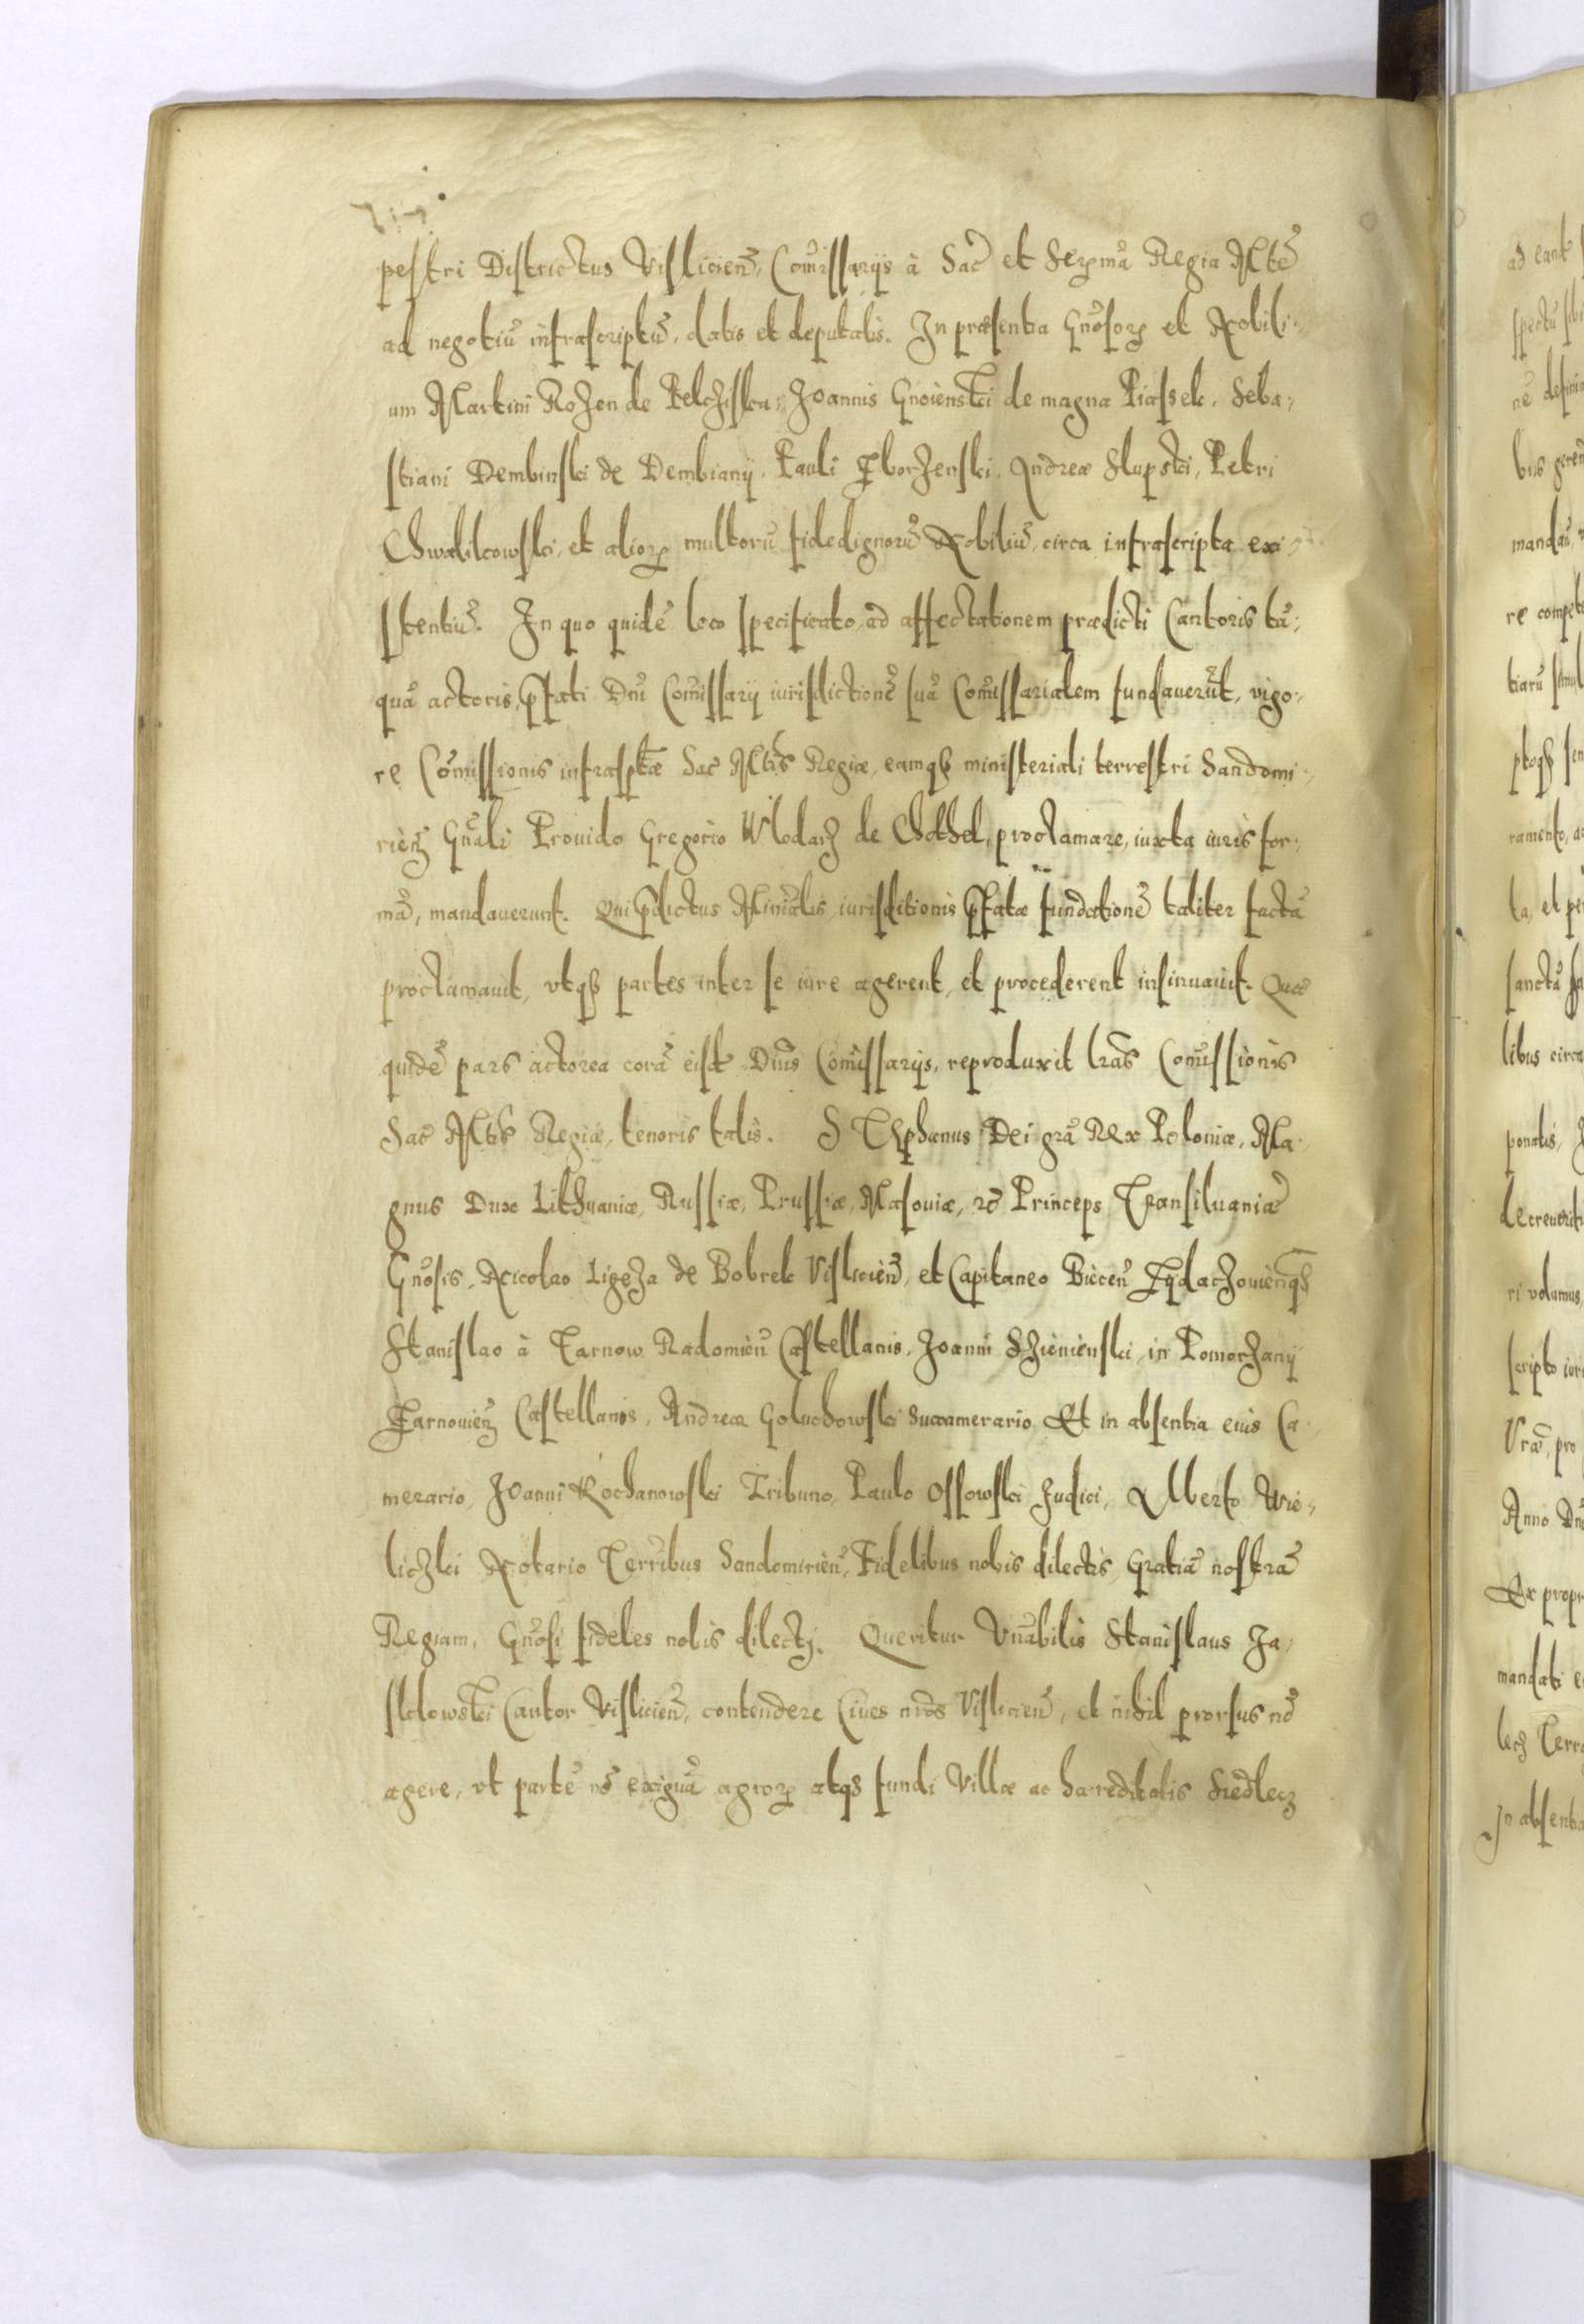 pestri Districtus Vislicien̄, Com̄issarijs à Sac̄ et Serꝫmā Regia Mtē
ad negotiū infrascriptū, datis et deputatis. In præsentia Gn̄osoꝝ et Nobili-
um Martini Rozen de Pelczyska, Joannis Gnoienski de magna Piassek, Seba-
stiani Dembinski de Dembianÿ, Pauli Zborzenski, Andreæ Slupski, Petri
Chwalikowski, et alioꝝ multorū fidedignorū Nobiliū, circa infrascripta exi-
stentiū. In quo quidē loco specificato, ad affectationem prædicti Cantoris tā-
quā actoris, p̄fati Dn̄i Com̄issarij iurisdictionē suā Com̄issarialem fundauerūt, vigo-
re Com̄issionis infrasptæ Sac̄ Mtis Regiæ, eamqꝫ ministeriali terrestri Sandomi-
rien̄ Gn̄ali Prouido Gregorio Wlodarz de Chothel, proclamare, iuxta iuris for-
mā, mandauerunt. Qui p̄dictus Min̄ralis iurisditionis p̄fatæ fundationē taliter factā
proclamauit, vtqꝫ partes inter se iure agerent, et procederent insinuauit. Quæ
quidē pars actorea corā eisd̄ Dn̄is Com̄issarijs, reproduxit lrās Com̄issionis
Sac̄ Mtis Regiæ, tenoris talis. STephanus Dei grā Rex Poloniæ, Ma-
gnus Dux Lithuaniæ, Russiæ, Prussiæ, Masouiæ, ꝛc̄ Princeps Transiluaniæ
Gn̄osis, Nicolao Ligeza de Bobrek Vislicien̄, et Capitaneo Biecen̄ Zydaczouien̄qꝫ
Stanislao à Tarnow Radomien̄ Castellanis, Joanni Schienienski in Pomorzanÿ
Zarnouien̄ Castellanis, Andreæ Goluchowski Succamerario Et in absentia eius Ca-
merario, Joanni Kochanowski Tribuno, Paulo Ossowski Judici, Alberto Wie-
liczki Notario Terr̄ibus Sandomirien̄, Fidelibus nobis dilectis Gratiā nostrā
Regiam, Gn̄osi fideles nobis dilecti. Queritur Vn̄abilis Stanislaus Ja-
sklowski Cantor Vislicien̄, contendere Ciues nr̄os Vislicien̄, et nihil prorsus nō
agere, vt partē nō exiguā agroꝝ atqꝫ fundi Villæ ac hæreditatis Siedlecz